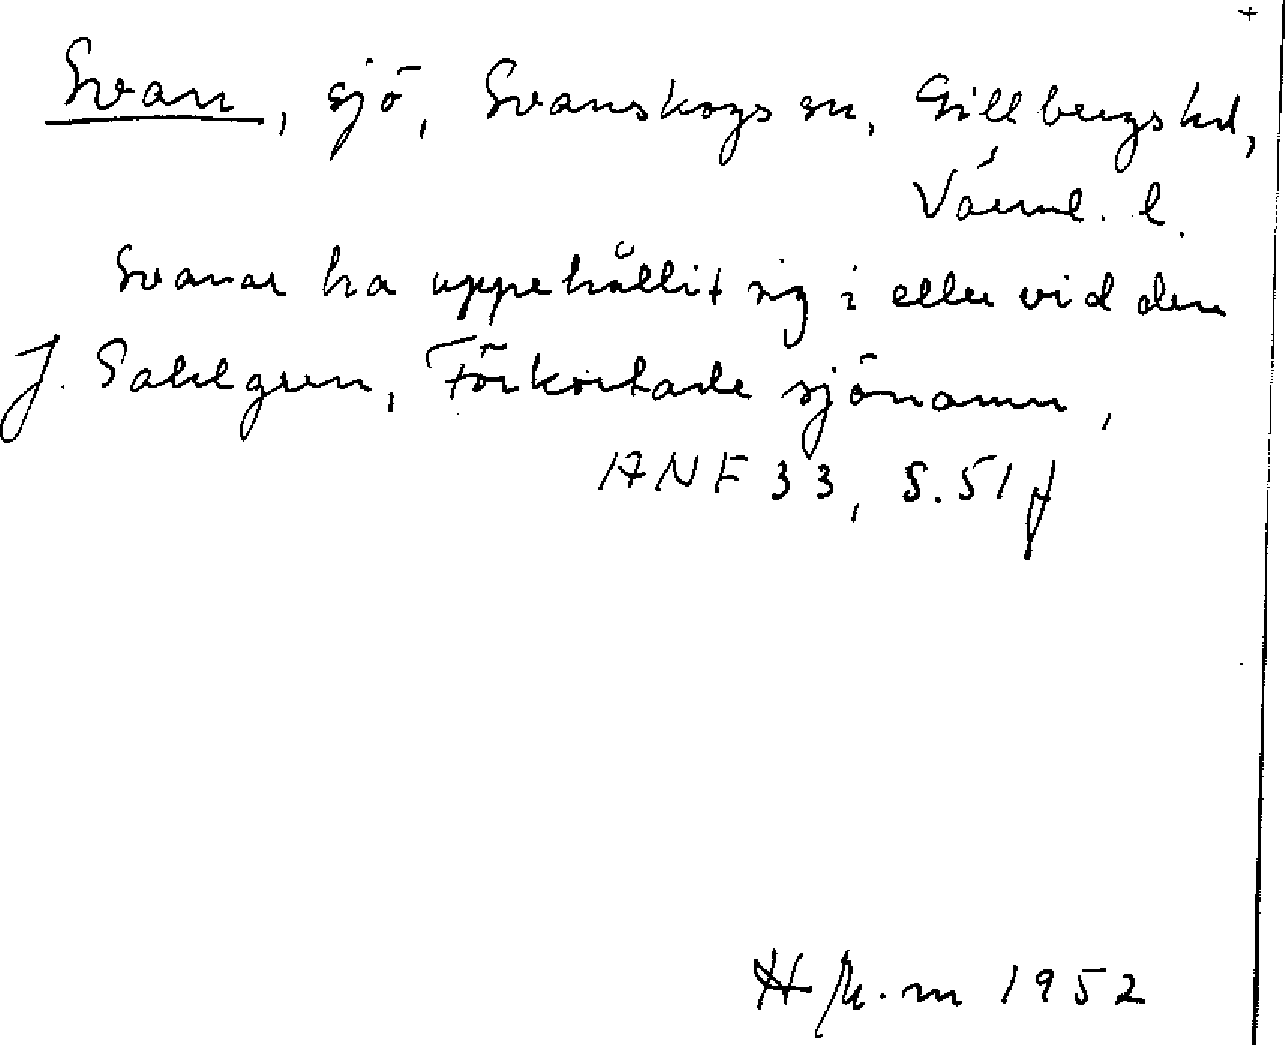 +
Svan, sjö, Svanskogs sn, Gillbergs hd,
Värml. l.
Svanar ha uppehållit sig i eller vid den
J. Sahlgren, Förkortade sjönamn,
ANF 33, S. 51 f
1952